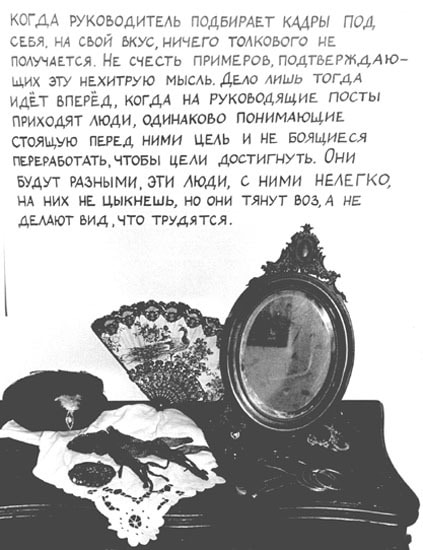 КОГДА РУКОВОДИТЕЛЬ ПОДБИРАЕТ КАДРЫ ПОД
СЕБЯ, НА СВОЙ ВКУС, НИЧЕГО ТОЛКОВОГО НЕ
ПОЛУЧАЕТСЯ. НЕ СЧЕСТЬ ПРИМЕРОВ, ПОДТВЕРЖДАЮ-
ЩИХ ЭТУ НЕХИТРУЮ МЫСЛЬ. ДЕЛО ЛИШЬ ТОГДА
ИДЁТ ВПЕРЁД, КОГДА НА РУКОВОДЯЩИЕ ПОСТЫ
ПРИХОДЯТ ЛЮДИ, ОДИНАКОВО ПОНИМАЮЩИЕ
СТОЯЩУЮ ПЕРЕД НИМИ ЦЕЛЬ И НЕ БОЯЩИЕСЯ
ПЕРЕРАБОТАТЬ, ЧТОБЫ ЦЕЛИ ДОСТИГНУТЬ. ОНИ
БУДУТ РАЗНЫМИ, ЭТИ ЛЮДИ, С НИМИ НЕЛЕГКО,
НА НИХ НЕ ЦЫКНЕШЬ, НО ОНИ ТЯНУТ ВОЗ, А НЕ
ДЕЛАЮТ ВИД, ЧТО ТРУДЯТСЯ.